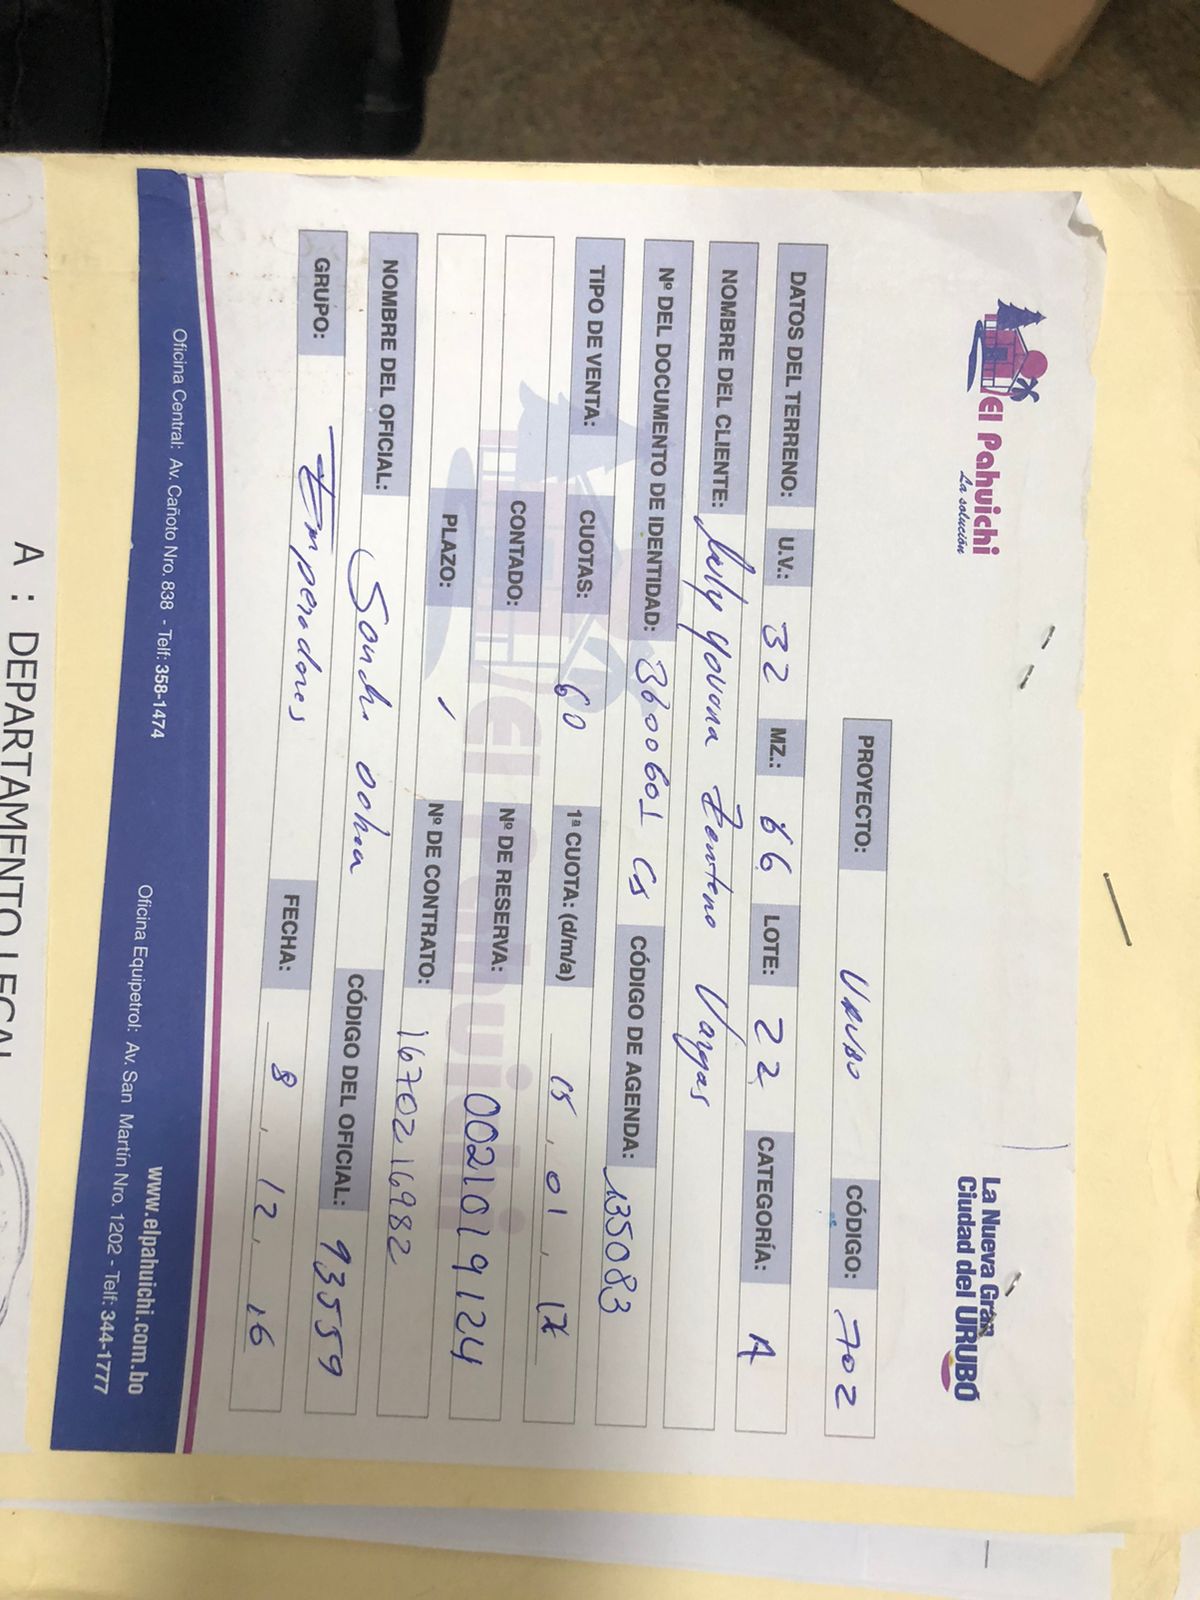 El Pahuichi
La solución
La Nueva Gran
Ciudad del URUBÓ
PROYECTO: URUBO CÓDIGO: 702
DATOS DEL TERRENO: U.V.: 32 MZ.: 66 LOTE: 22 CATEGORÍA: A
NOMBRE DEL CLIENTE: Yovana Zenteno Vargas
Nº DEL DOCUMENTO DE IDENTIDAD: 3600601 CÓDIGO DE AGENDA: 135083
TIPO DE VENTA: CUOTAS: 60 1ª CUOTA: (d/m/a) 15 . 01 . 17
CONTADO: Nº DE RESERVA: 0021019124
PLAZO: / Nº DE CONTRATO: 1670216982
NOMBRE DEL OFICIAL: Sandra Ochoa CÓDIGO DEL OFICIAL: 93559
GRUPO: Emperadores FECHA: 8 . 12 . 16
El Pahuichi
Oficina Central: Av. Cañoto Nro. 838 - Telf: 358-1474
www.elpahuichi.com.bo
Oficina Equipetrol: Av. San Martín Nro. 1202 - Telf: 344-1777
A : DEPARTAMENTO LEGAL